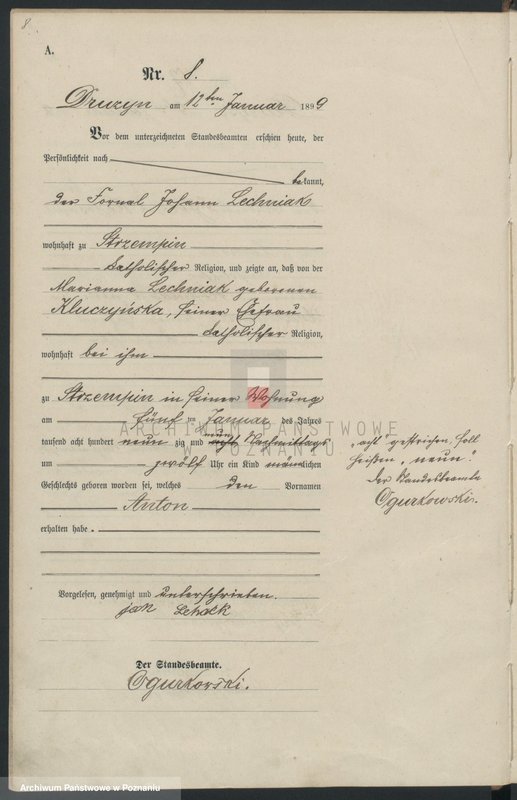 8
A.
Nr. 8.
Druzyn am 12ten Januar 1899
Vor dem unterzeichneten Standesbeamten erschien heute, der
Persönlichkeit nach
bekannt,
der Fornal Johann Lechniak
wohnhaft zu Strzempin
katholischer Religion, und zeigte an, daß von der
Marianna Lechniak geborenen
Kluczyńska, seiner Ehefrau
katholischer Religion,
wohnhaft bei ihm
zu Strzempin in seiner Wohnung
am fünf ten Januar des Jahres
tausend acht hundert neun zig und acht neun Nachmittags
um zwölf Uhr ein Kind männlichen
Geschlechts geboren worden sei, welches den Vornamen
Anton
erhalten habe.
Vorgelesen, genehmigt und unterschrieben.
jan
Der Standesbeamte.
Ogurkowski.
„acht" gestrichen, soll
heißen „neun".
Der Standesbeamte
Ogurkowski.
ARCHIWUM PAŃSTWOWE
W POZNANIU
Archiwum Państwowe w Poznaniu